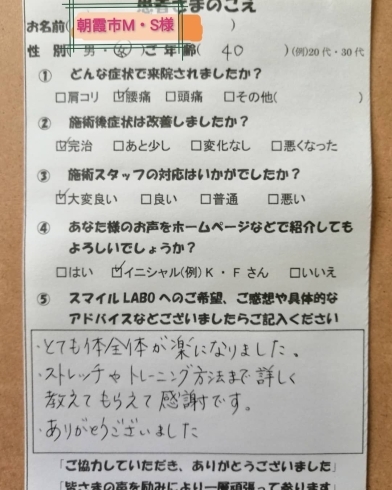 患者さまのこえ
お名前( 朝霞市M・S様 )
性 別( 男・女 )ご年齢( 40 )(例)20代・30代
① どんな症状で来院されましたか?
□肩コリ ☑腰痛 □頭痛 □その他( )
② 施術後症状は改善しましたか?
☑完治 □あと少し □変化なし □悪くなった
③ 施術スタッフの対応はいかがでしたか?
☑大変良い □良い □普通 □悪い
④ あなた様のお声をホームページなどで紹介しても
よろしいでしょうか?
□はい ☑イニシャル(例)K・Fさん □いいえ
⑤ スマイルLABOへのご希望、ご感想や具体的な
アドバイスなどございましたらご記入ください
・とても体全体が楽になりました。
・ストレッチやトレーニング方法まで詳しく
教えてもらえて感謝です。
・ありがとうございました
「ご協力していただき、ありがとうございました」
「皆さまの声を励みにより一層頑張って参ります」